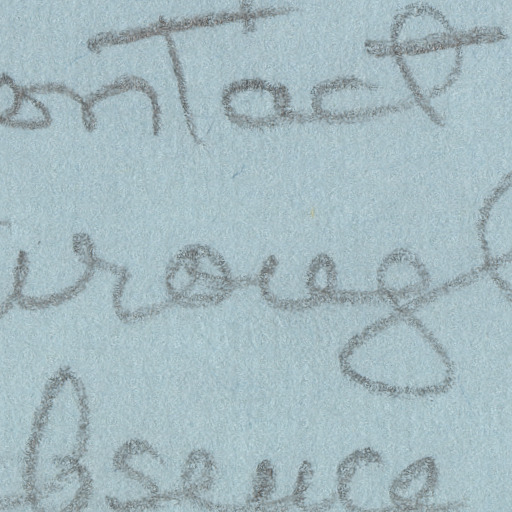 ontact
roug
bsence